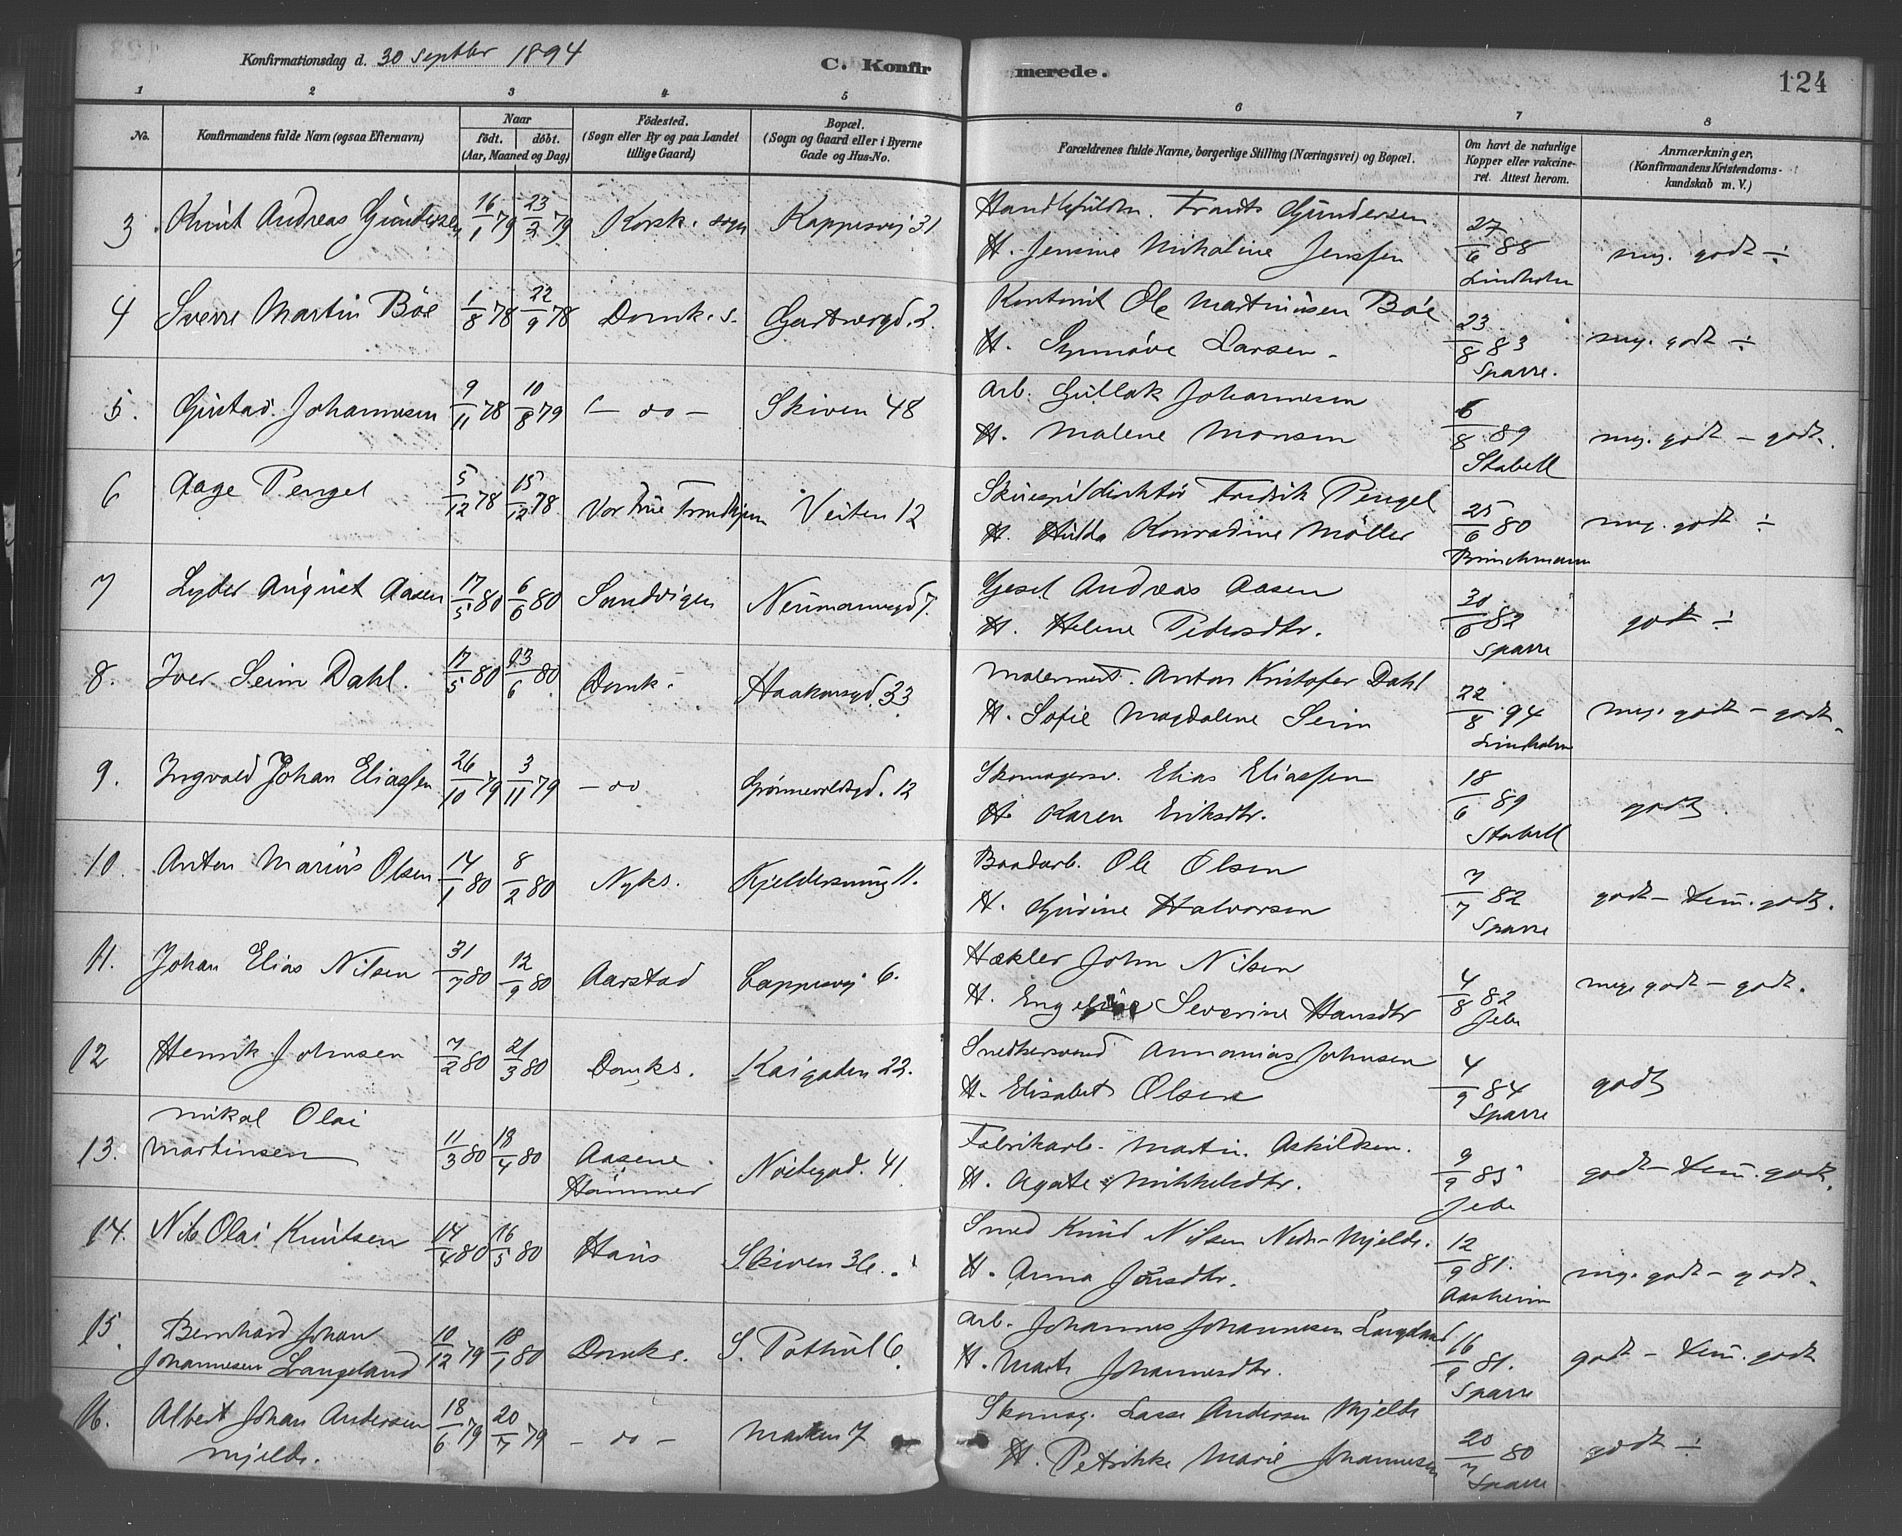 Konfirmationsdag d. 30 Septbr 1894 C. Konfirmerede. 124
1 2 3 4 5 6 7 8
No. Konfirmandens fulde Navn (ogsaa Efternavn) Naar födt. döbt. (Aar, Maaned og Dag) Födested. (Sogn eller By og paa Landet tillige Gaard) Bopæl. (Sogn og Gaard eller i Byerne Gade og Hus-No. Forældrenes fulde Navne, borgerlige Stilling (Næringsvei) og Bopæl. Om havt de naturlige Kopper eller vakcineret. Attest herom. Anmærkninger. (Konfirmandens Kristendomskundskab m. V.)
3 Knut Andreas Gundersen 16/1 79 23/2 79 Korsk. sogn Kappesvej 31 Frants Gundersen 27/6 88
H. Jensine Mikaline Jenssen Lindholm meg. godt ÷
4 Sverre Martin Böe 1/8 78 22/9 78 Domk. s. Gartnergd. 2. Kontorist Ole Martinusen Böe 23/8 83
H. Synnöve Larsen Sparre. meg. godt ÷
5. Gustav Johannesen 9/11 78 10/8 79 – do – Skiven 48 Arb. Gullak Johannesen 6/8 89
H. Malene Monsen Stabell meg. godt – godt.
6 Aage Pengel 5/12 78 15/12 78 Vor Frue Trondhjem Veiten 12 Skuespildirektör Fredrik Pengel 25/6 80
H. Hulda Konradine Möller Brinchmann meg. godt ÷
7 Lyder August Aasen 17/5 80 6/6 80 Sandvigen Neumannsgd 7. Gesel Andreas Aasen 30/6 82
H. Helene Pedersdtr. Sparre godt ÷
8. Iver Seim Dahl. 17/5 80 13/6 80 Domk. Haakonsgd. 33 Malermest. Anton Kristofer Dahl 22/8 94
H. Sofie Magdalene Seim Lindholm meg. godt – godt.
9. Ingvald Johan Eliassen 26/10 79 3/11 79 – do Grönnevoldsgd. 12 Skomagersv. Elias Eliassen 18/6 89
H. Karen Eriksdtr. Stabell godt
10. Anton Marius Olsen 14/1 80 8/2 80 Nyks. Kjeldersmug 11. Baadarb. Ole Olsen 7/7 82
H. Gurine Halvorsen Sparre godt – tem. godt.
11. Johan Elias Nilsen 31/7 80 12/9 80 Aarstad Cappesvej 6. Hækler John Nilsen 4/8 82
H. Severine Hansdtr Jebe meg. godt – godt.
12 Henrik Johnsen 7/2 80 21/3 80 Domks. Kaigaden 22. Snedkersvend Annanias Johnsen 4/9 84
H. Elisabet Olsen Sparre godt
13. Mikal Olai
Martinsen 11/3 80 18/4 80 Aasene Hammer Nöstegad. 41 Fabrikarb. Martin Askildsen. 9/9 85
H. Agate Mikkelsdtr. Jebe godt – tem. godt.
14. Nils Olai Knutsen 14/4 80 16/5 80 Haus Skiven 36. Smed Knud Nilsen Nedre-Mjelde. 12/9 81.
H. Anna Jonsdtr. Aasheim meg. godt – godt.
15. Bernhard Johan
Johannesen Langeland 10/12 79 18/1 80 Domks. S. Pathul 6. Arb. Johannes Johannesen Langeland 16/9 81.
H. Marta Johannesdtr. Sparre godt – tem. godt
16. Albert Johan Andersen
Mjelde. 18/6 79 20/7 79 – do – Marken 7 Skomag. Lasse Andersen Mjelde 20/7 80
H. Petrikke Marie Johannesen Sparre godt ÷